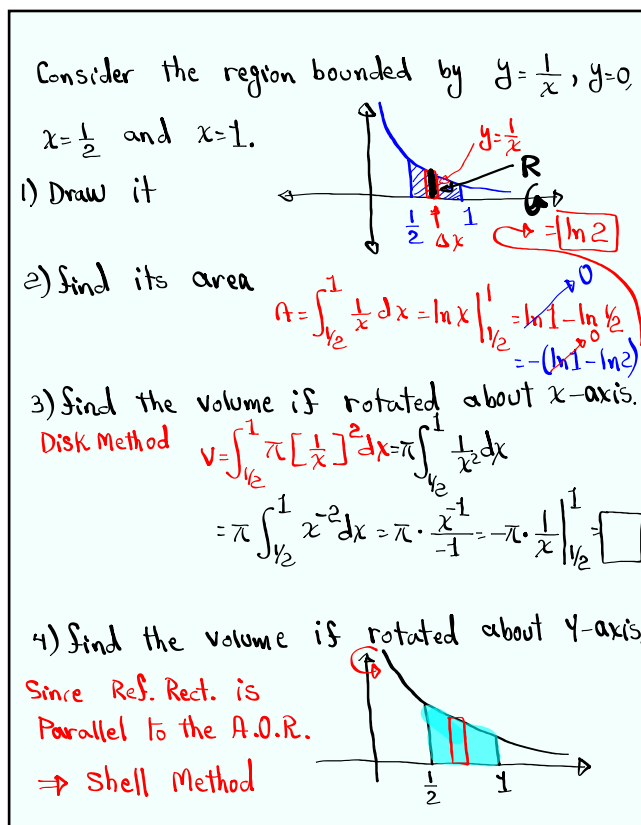 Consider the region bounded by y = 1/x , y=0,
x = 1/2 and x=1.
1) Draw it
y = 1/x
R
1/2 Δx 1
= ln 2
2) find its area
A = ∫_{1/2}^{1} 1/x dx = ln x |_{1/2}^{1} = ln 1 - ln 1/2
0
= -(ln 1 - ln 2)
0
3) find the volume if rotated about x-axis.
Disk Method V = ∫_{1/2}^{1} π [1/x]^2 dx = π ∫_{1/2}^{1} 1/x^2 dx
= π ∫_{1/2}^{1} x^{-2} dx = π · x^{-1}/-1 = -π · 1/x |_{1/2}^{1} =
4) find the volume if rotated about Y-axis
Since Ref. Rect. is
Parallel to the A.O.R.
⇒ Shell Method
1/2 1